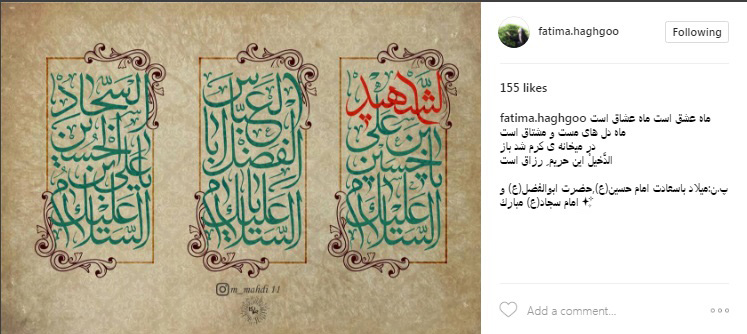 الشهيد
السلام عليك يا حسين بن علي
السلام عليك يا ابا الفضل العباس
السلام عليك يا علي بن الحسين السجاد
m_mahdi 11
fatima.haghgoo
Following
155 likes
fatima.haghgoo ماه عشق است ماه عشاق است
ماه دل های مست و مشتاق است
در میخانه ی کرم شد باز
الدَّخیلُ این حریم, رزاق است
پ.ن:میلاد باسعادت امام حسین(ع),حضرت ابوالفضل(ع) و
امام سجاد(ع) مبارك
Add a comment...